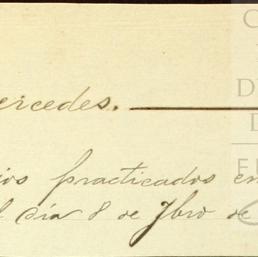 ercedes.
ios practicados en
l día 8 de 7bro de